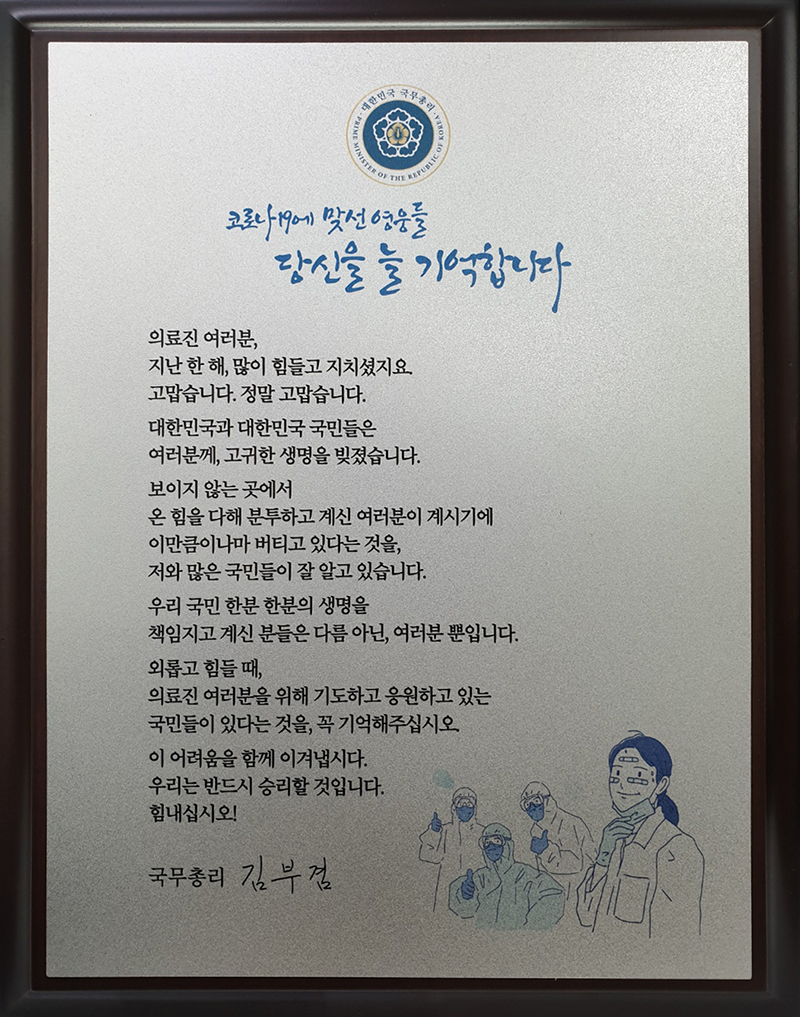 대한민국 국무총리
PRIME MINISTER OF THE REPUBLIC OF KOREA
코로나19에 맞선 영웅들
당신을 늘 기억합니다
의료진 여러분,
지난 한 해, 많이 힘들고 지치셨지요.
고맙습니다. 정말 고맙습니다.
대한민국과 대한민국 국민들은
여러분께, 고귀한 생명을 빚졌습니다.
보이지 않는 곳에서
온 힘을 다해 분투하고 계신 여러분이 계시기에
이만큼이나마 버티고 있다는 것을,
저와 많은 국민들이 잘 알고 있습니다.
우리 국민 한분 한분의 생명을
책임지고 계신 분들은 다름 아닌, 여러분 뿐입니다.
외롭고 힘들 때,
의료진 여러분을 위해 기도하고 응원하고 있는
국민들이 있다는 것을, 꼭 기억해주십시오.
이 어려움을 함께 이겨냅시다.
우리는 반드시 승리할 것입니다.
힘내십시오!
국무총리 김부겸